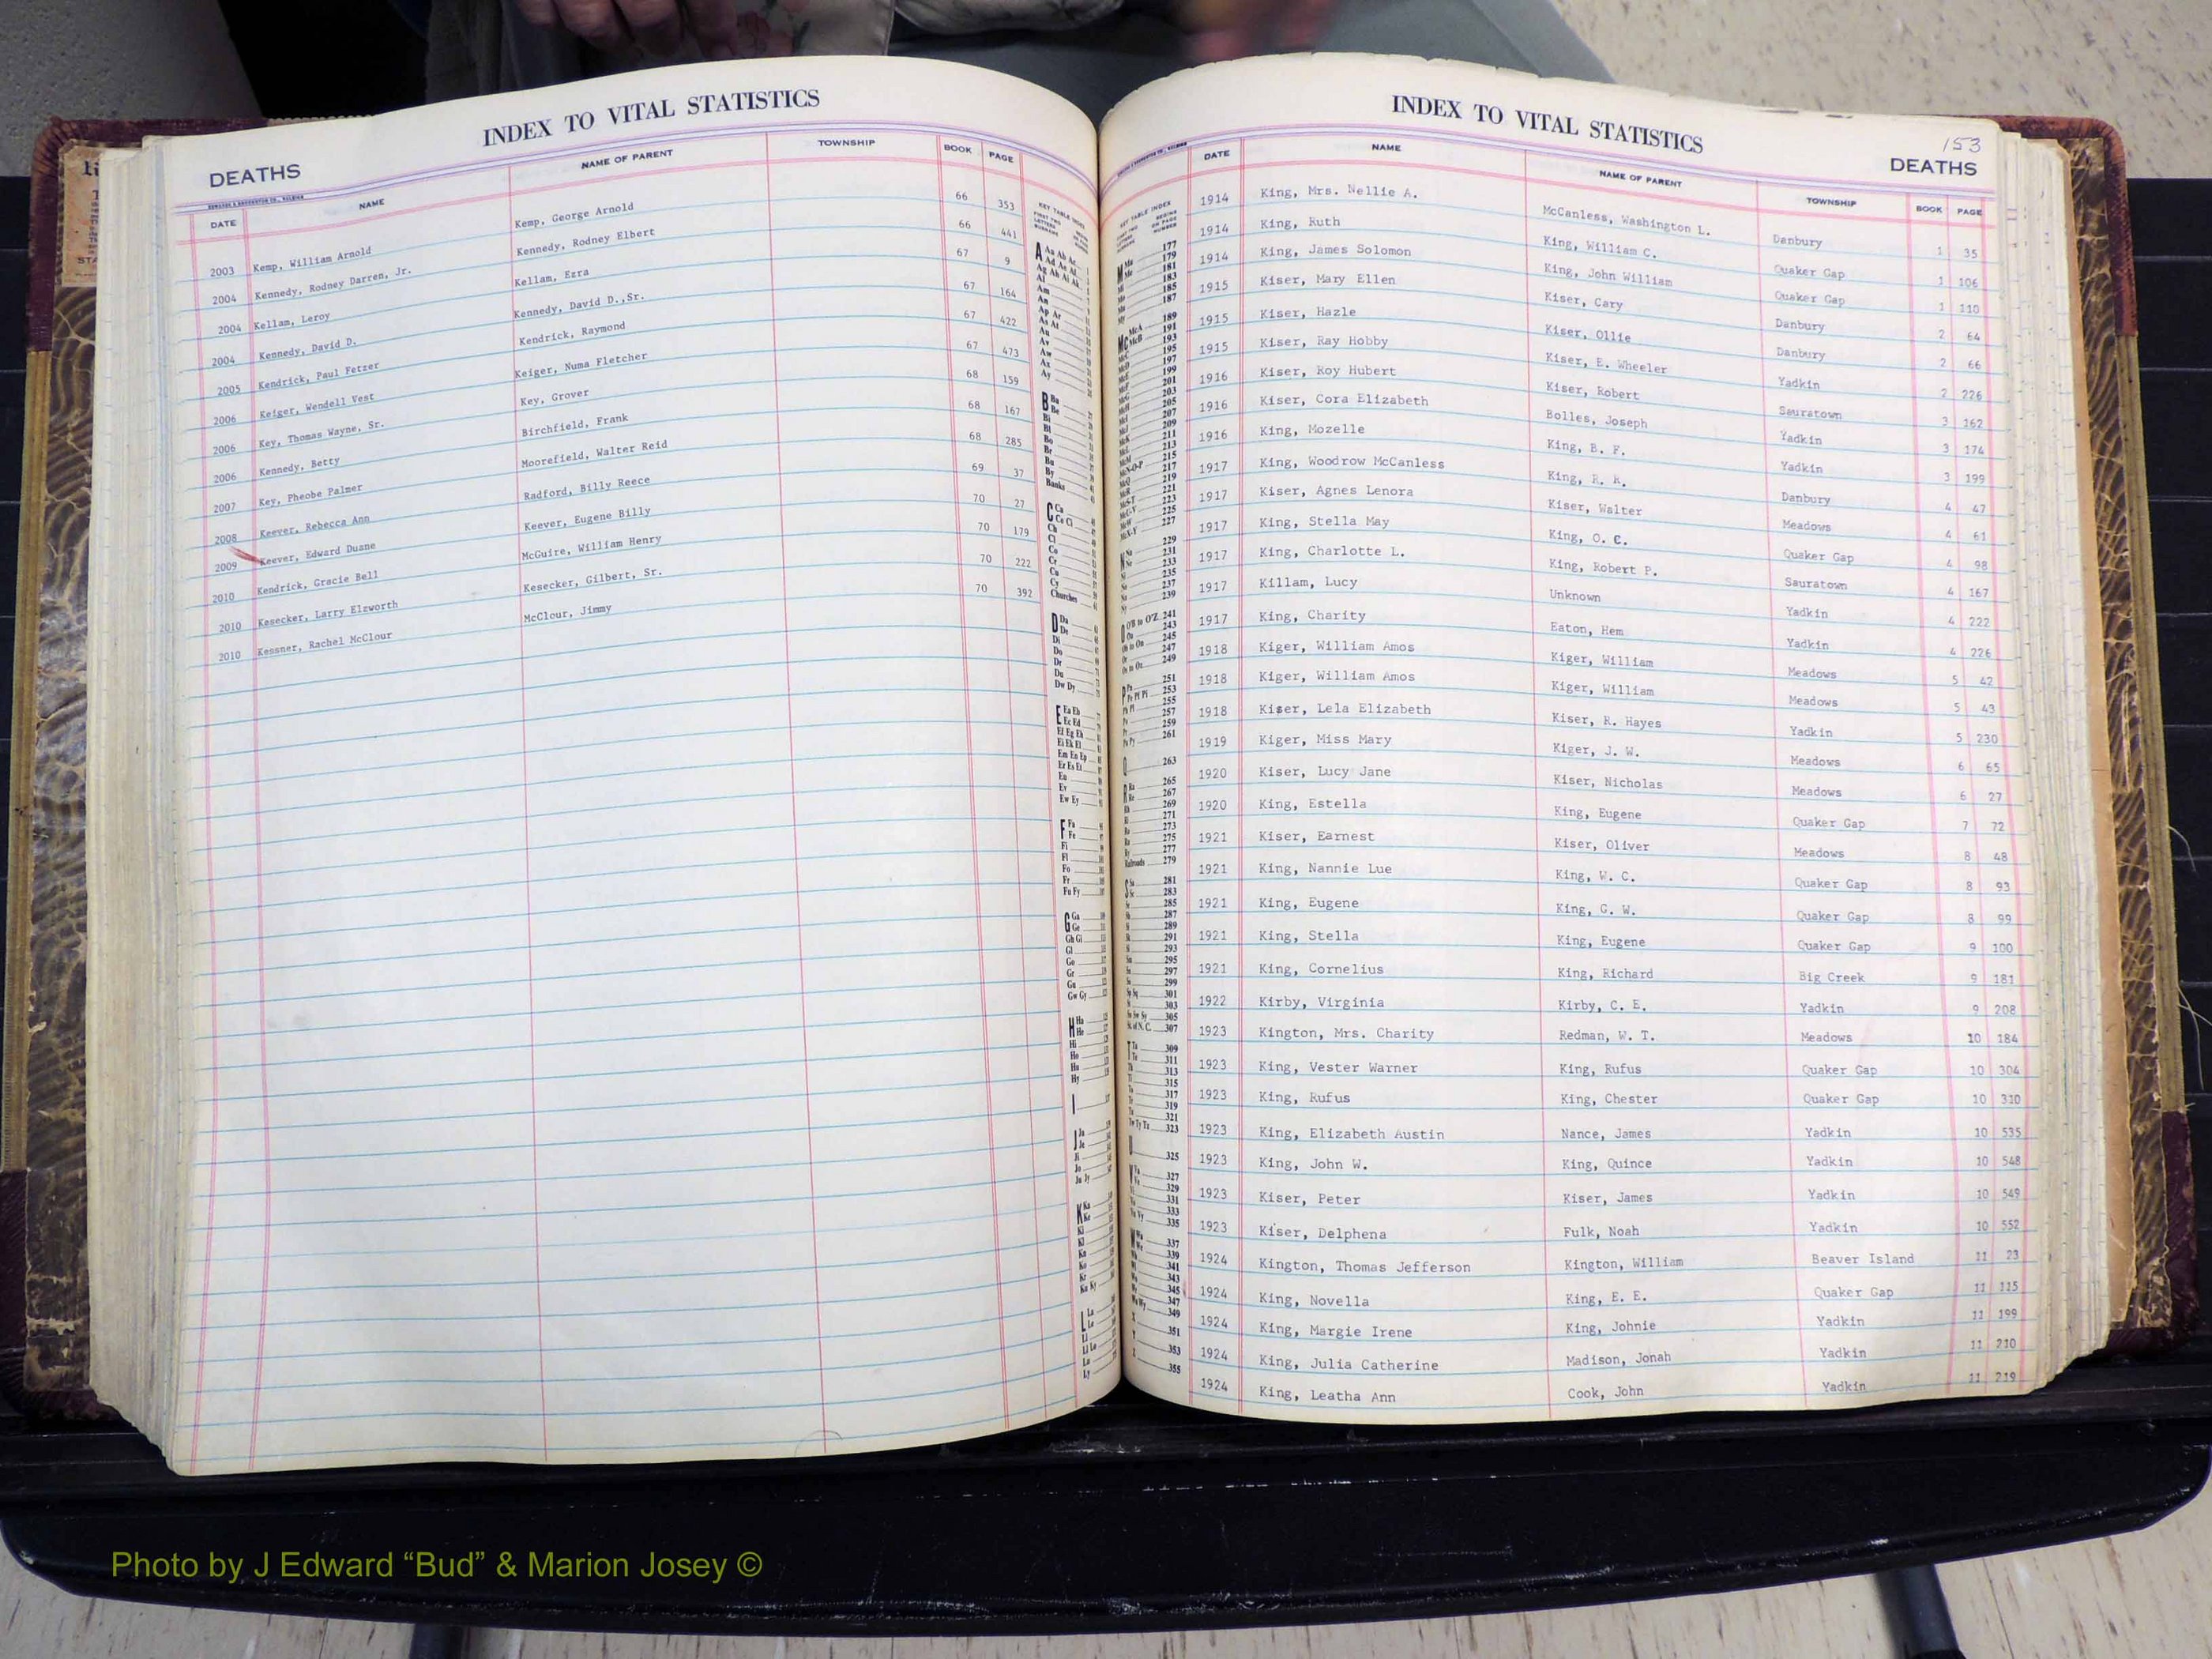 INDEX TO VITAL STATISTICS
DEATHS
DATE NAME NAME OF PARENT TOWNSHIP BOOK PAGE
2003 Kemp, William Arnold Kemp, George Arnold 66 353
2004 Kennedy, Rodney Darren, Jr. Kennedy, Rodney Elbert 66 441
2004 Kellam, Leroy Kellam, Ezra 67 9
2004 Kennedy, David D. Kennedy, David D.,Sr. 67 164
2005 Kendrick, Paul Fetzer Kendrick, Raymond 67 422
2006 Keiger, Wendell Vest Keiger, Numa Fletcher 67 473
2006 Key, Thomas Wayne, Sr. Key, Grover 68 159
2006 Kennedy, Betty Birchfield, Frank 68 167
2007 Key, Pheobe Palmer Moorefield, Walter Reid 68 285
2008 Keever, Rebecca Ann Radford, Billy Reece 69 37
2009 Keever, Edward Duane Keever, Eugene Billy 70 27
2010 Kendrick, Gracie Bell McGuire, William Henry 70 179
2010 Kesecker, Larry Elzworth Kesecker, Gilbert, Sr. 70 222
2010 Kessner, Rachel McClour McClour, Jimmy 70 392
INDEX TO VITAL STATISTICS
153
DEATHS
DATE NAME NAME OF PARENT TOWNSHIP BOOK PAGE
1914 King, Mrs. Nellie A. McCanless, Washington L. Danbury 1 35
1914 King, Ruth King, William C. Quaker Gap 1 106
1914 King, James Solomon King, John William Quaker Gap 1 110
1915 Kiser, Mary Ellen Kiser, Cary Danbury 2 64
1915 Kiser, Hazle Kiser, Ollie Danbury 2 66
1915 Kiser, Ray Hobby Kiser, E. Wheeler Yadkin 2 226
1916 Kiser, Roy Hubert Kiser, Robert Sauratown 3 162
1916 Kiser, Cora Elizabeth Bolles, Joseph Yadkin 3 174
1916 King, Mozelle King, B. F. Yadkin 3 199
1917 King, Woodrow McCanless King, R. R. Danbury 4 47
1917 Kiser, Agnes Lenora Kiser, Walter Meadows 4 61
1917 King, Stella May King, O. C. Quaker Gap 4 98
1917 King, Charlotte L. King, Robert P. Sauratown 4 167
1917 Killam, Lucy Unknown Yadkin 4 222
1917 King, Charity Eaton, Hem Yadkin 4 226
1918 Kiger, William Amos Kiger, William Meadows 5 42
1918 Kiger, William Amos Kiger, William Meadows 5 43
1918 Kiser, Lela Elizabeth Kiser, R. Hayes Yadkin 5 230
1919 Kiger, Miss Mary Kiger, J. W. Meadows 6 65
1920 Kiser, Lucy Jane Kiser, Nicholas Meadows 6 27
1920 King, Estella King, Eugene Quaker Gap 7 72
1921 Kiser, Earnest Kiser, Oliver Meadows 8 48
1921 King, Nannie Lue King, W. C. Quaker Gap 8 93
1921 King, Eugene King, G. W. Quaker Gap 8 99
1921 King, Stella King, Eugene Quaker Gap 9 100
1921 King, Cornelius King, Richard Big Creek 9 181
1922 Kirby, Virginia Kirby, C. E. Yadkin 9 208
1923 Kington, Mrs. Charity Redman, W. T. Meadows 10 184
1923 King, Vester Warner King, Rufus Quaker Gap 10 304
1923 King, Rufus King, Chester Quaker Gap 10 310
1923 King, Elizabeth Austin Nance, James Yadkin 10 535
1923 King, John W. King, Quince Yadkin 10 548
1923 Kiser, Peter Kiser, James Yadkin 10 549
1923 Kiser, Delphena Fulk, Noah Yadkin 10 552
1924 Kington, Thomas Jefferson Kington, William Beaver Island 11 23
1924 King, Novella King, E. E. Quaker Gap 11 115
1924 King, Margie Irene King, Johnie Yadkin 11 199
1924 King, Julia Catherine Madison, Jonah Yadkin 11 210
1924 King, Leatha Ann Cook, John Yadkin 11 219
Photo by J Edward “Bud” & Marion Josey ©